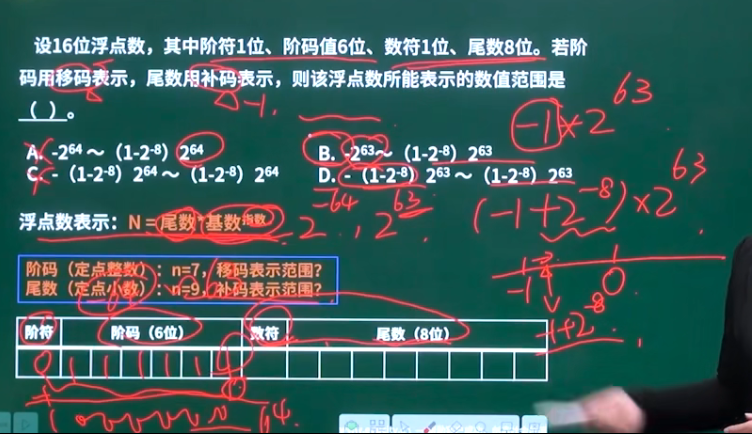 设16位浮点数，其中阶符1位、阶码值6位、数符1位、尾数8位。若阶
码用移码表示，尾数用补码表示，则该浮点数所能表示的数值范围是
（ ）。
-1
-1×2⁶³
A. -2⁶⁴～（1-2⁻⁸）2⁶⁴ B. -2⁶³～（1-2⁻⁸）2⁶³
C. -（1-2⁻⁸）2⁶⁴～（1-2⁻⁸）2⁶⁴ D. -（1-2⁻⁸）2⁶³～（1-2⁻⁸）2⁶³
(-1+2⁻⁸)×2⁶³
浮点数表示：N = 尾数*基数指数
2⁻⁶⁴, 2⁶³
阶码（定点整数）：n=7，移码表示范围？
尾数（定点小数）：n=9，补码表示范围？
-1 0
-1+2⁻⁸
阶符 阶码（6位） 数符 尾数（8位）
64